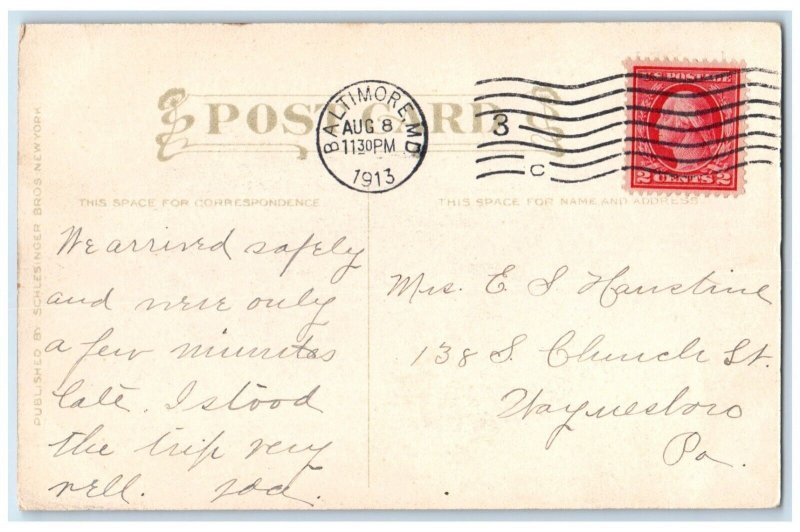 POST CARD
BALTIMORE, MD.
AUG 8
1130PM
1913
3
C
U.S. POSTAGE
2 CENTS 2
THIS SPACE FOR CORRESPONDENCE
THIS SPACE FOR NAME AND ADDRESS
PUBLISHED BY SCHLESINGER BROS. NEW YORK
We arrived safely
and were only
a few minutes
late. I stood
the trip very
well.
Mrs. E. S.
138 S. Church St.
Waynesboro
Pa.